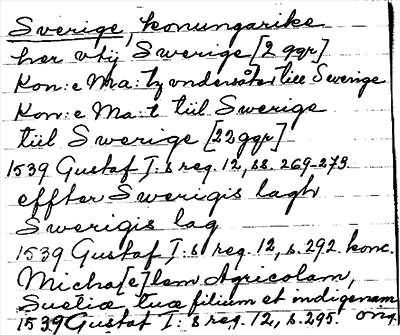 Sverige, konungarike
her vtij Swerige [2 ggr]
Kon:e Ma:tz vndersåter till Swerige
Kon:e Ma:t tiil Swerige
tiil Swerige [22 ggr]
1539 Gustaf I:s reg. 12, ss. 269-273
effter Swerigis lagh
Swerigis lag
1539 Gustaf I:s reg. 12, s. 292. konc.
Micha[e]lem Agricolam,
Suetiæ tuæ filium et indigenam
1539 Gustaf I:s reg. 12, s. 295. orig.